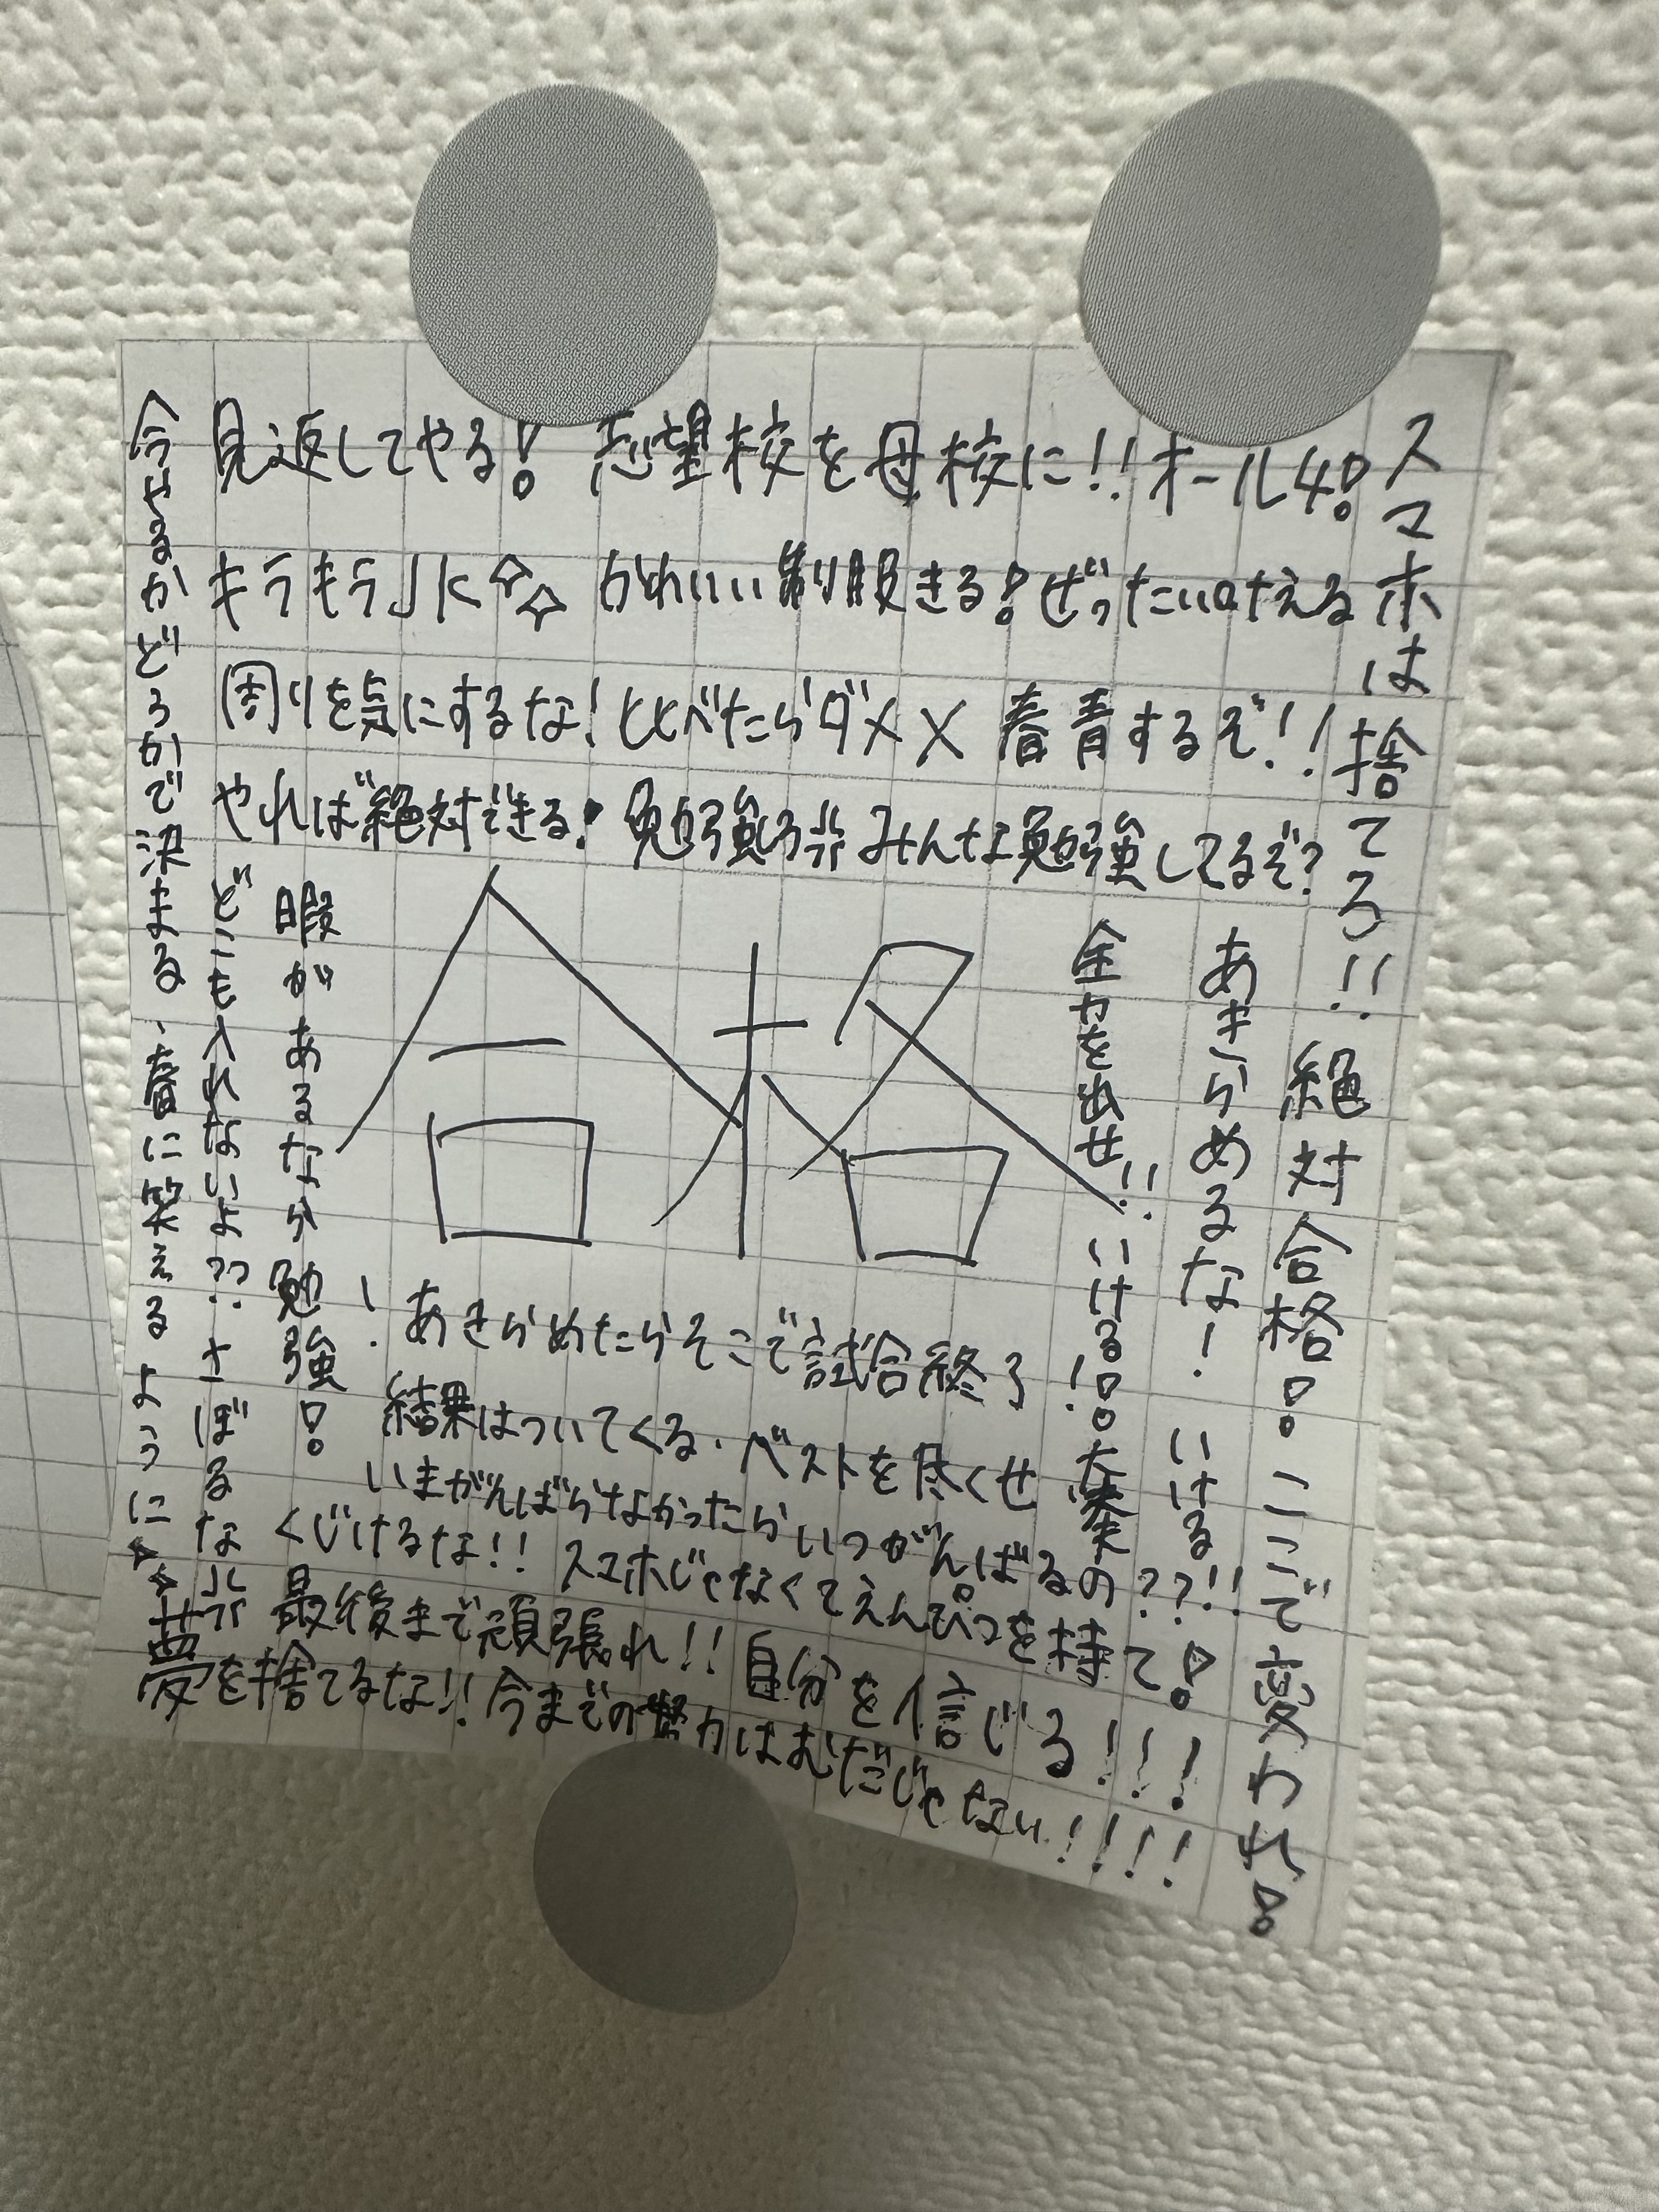 見返してやる! 志望校を母校に!!オール4!
キラキラJK かわいい制服きる!ぜったい叶える
周りを気にするな!比べたらダメ× 春青するぞ!!
やれば絶対できる! 勉強しろ!! みんな勉強してるぞ?
スマホは捨てろ!!絶対合格!ここで変われ!
あきらめるな!いける!!
全力を出せ!!いける!!大丈夫
合格
暇があるなら勉強!
どこも入れないよ??さぼるな!!
今やるかどうかで決まる、春に笑えるように
!あきらめたらそこで試合終了!
結果はついてくる.ベストを尽くせ
いまがんばらなかったらいつがんばるの??
くじけるな!!スマホじゃなくてえんぴつを持て!
最後まで頑張れ!!自分を信じる!!!
夢を捨てるな!!今までの努力はむだじゃない!!!!